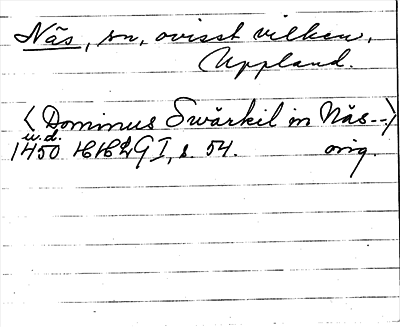 Näs, sn, ovisst vilken,
Uppland.
(Dominus Swärkil in Näs--)
u.d.
1450 HH2 G I, s. 54. orig.